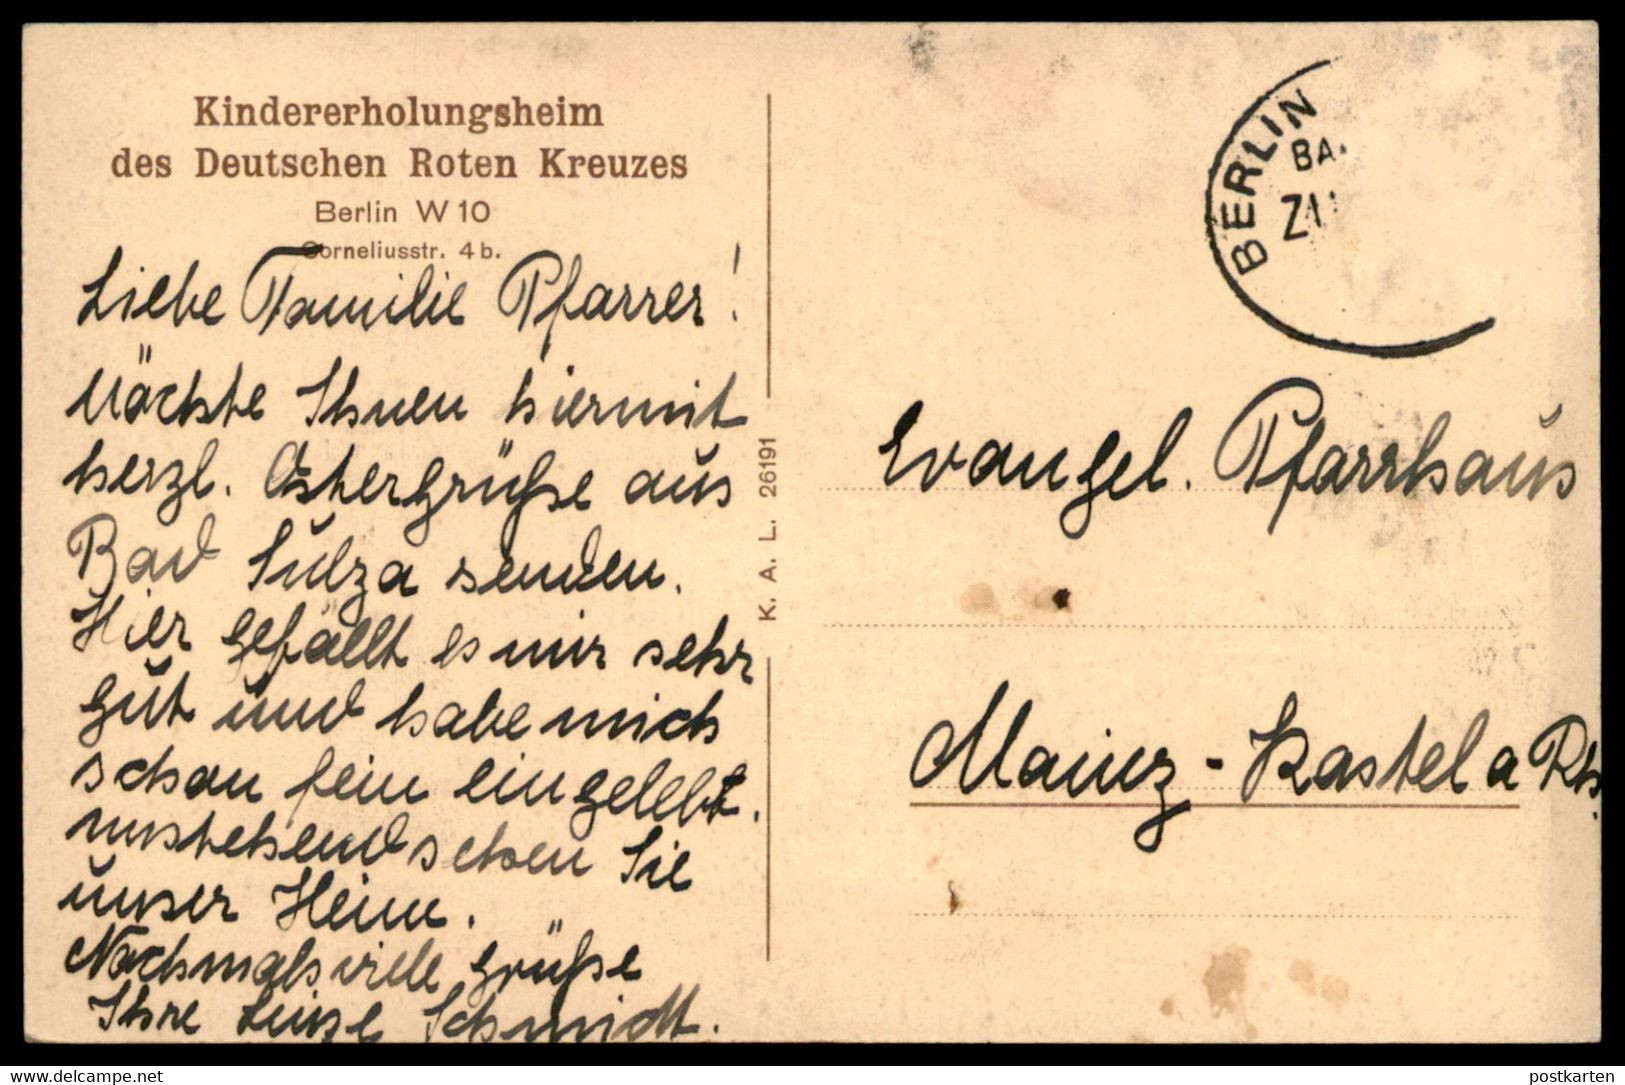 Kindererholungsheim
des Deutschen Roten Kreuzes
Berlin W 10
Corneliusstr. 4b.
Liebe Familie Pfarrer!
Möchte Ihnen hiermit
herzl. Ostergrüße aus
Bad Sulza senden.
Hier gefällt es mir sehr
gut und habe mich
schon fein eingelebt.
umstehend sehen Sie
unser Heim.
Nochmals viele Grüße
Ihre Luise Schmidt.
K. A. L. 26191
BERLIN
BA
Evangel. Pfarrhaus
Mainz-Kastel a Rh.
www.delcampe.net
postkarten